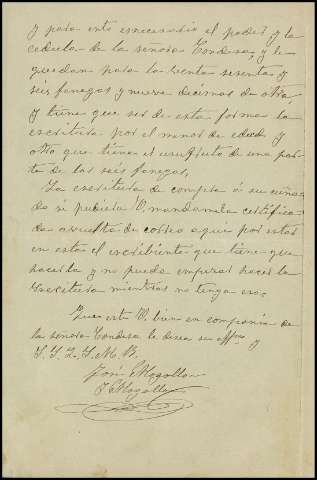 y para esto es necesario el poder y la
cedula de la señora Condesa, y le
quedan para la venta sesenta y
seis fanegas y nueve decimas de otra,
y tiene que ser de esta forma la
escritura por el menor de edad y
otro que tiene el usufruto de una par-
te de las seis fanegas,
La escritura de compra á su cuña-
do si pudiera V. mandarmela certifica-
da a vuelta de correo aqui por estar
en esta el escribiente que tiene que
hacerla y no puede empezar hacer la
escritura mientras no tenga eso.
Que este V. bien en compañia de
la señora Condesa le desea su affmo y
S. S. Q. S. M. B.
José E Mogollon
J E Mogollon